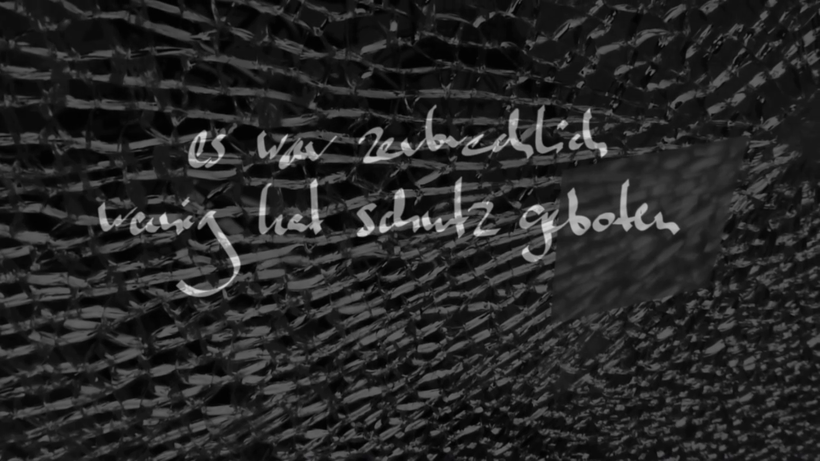 es war zerbrechlich
wenig hat schutz geboten